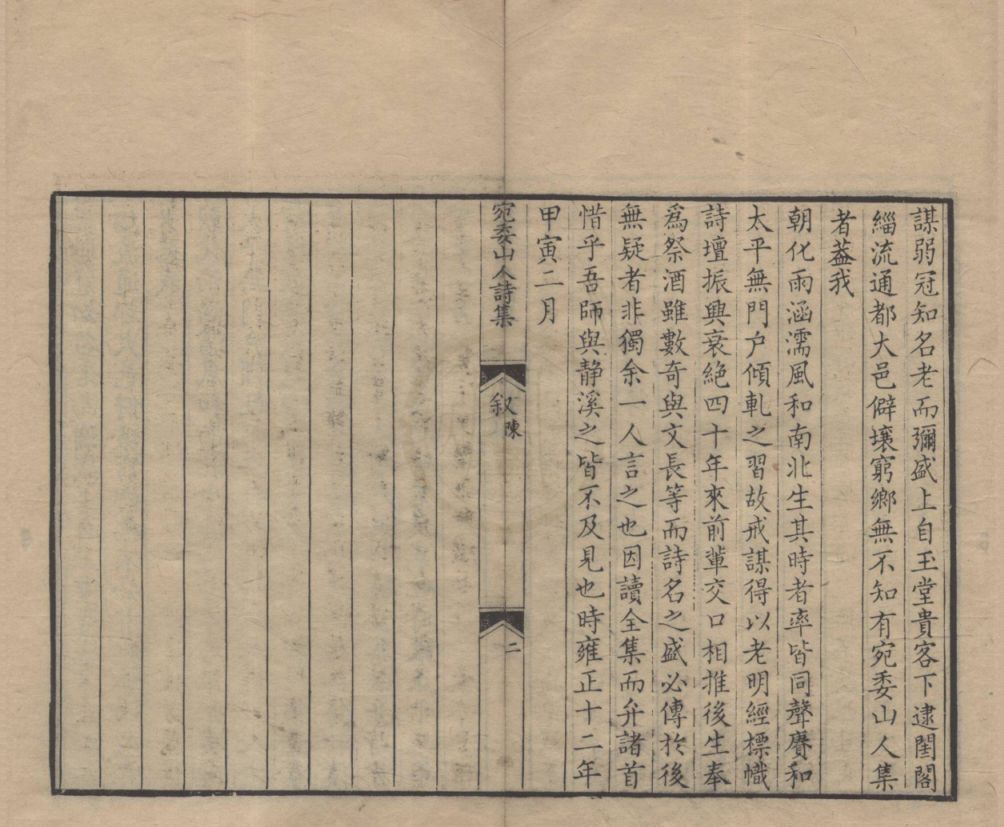 謀弱冠知名老而彌盛上自玉堂貴客下逮閨閣
緇流通都大邑僻壤窮鄉無不知有宛委山人集
者葢我
朝化雨涵濡風和南北生其時者率皆同聲賡和
太平無門户傾軋之習故戒謀得以老明經標幟
詩壇振興衰絶四十年來前輩交口相推後生奉
爲祭酒雖數奇與文長等而詩名之盛必傳於後
無疑者非獨余一人言之也因讀全集而弁諸首
惜乎吾師與静溪之皆不及見也時雍正十二年
甲寅二月
宛委山人詩集
叙
陳
二